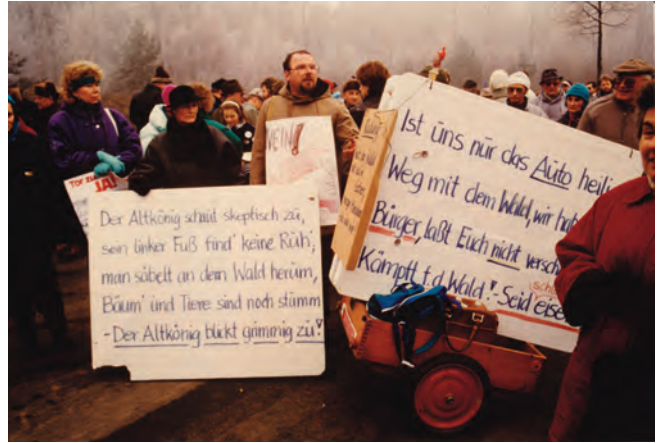 NEIN!
TOR ZU
JA!
Der Altkönig schaut skeptisch zu,
sein linker Fuß find' keine Ruh',
man säbelt an dem Wald herum,
Bäum' und Tiere sind noch stumm
- Der Altkönig blickt grimmig zu!
Ist uns nur das Auto heili
Weg mit dem Wald, wir hab
Bürger, laßt Euch nicht versch
Kämpft f.d. Wald! - Seid eise